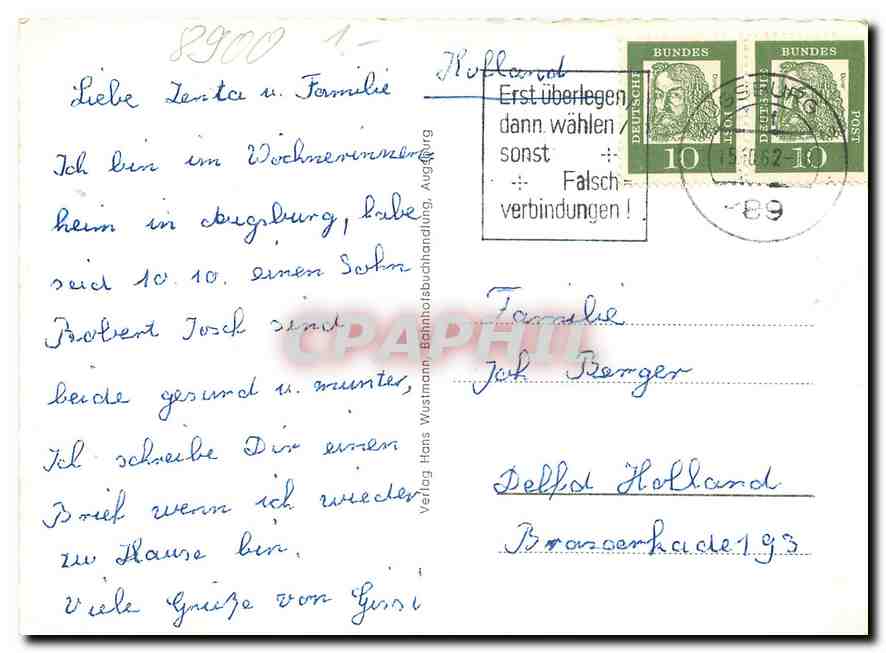 8900 1.-
Liebe Zenta u. Familie
Ich bin im Wöchnerinnen
heim in Augsburg, habe
seid 10.10. einen Sohn
Robert Josef sind
beide gesund u. munter,
Ich schreibe Dir einen
Brief wenn ich wieder
zu Hause bin.
Viele Grüße von Gissi
Verlag Hans Wustmann, Bahnhofsbuchhandlung, Augsburg
Holland
Erst überlegen,
dann wählen
sonst
Falsch-
verbindungen!
DEUTSCHE BUNDESPOST
10
DEUTSCHE BUNDESPOST
10
AUGSBURG
15.10.62
89
Familie
Joh Berger
Delfd Holland
Brasserkade 193
CPAPHIL